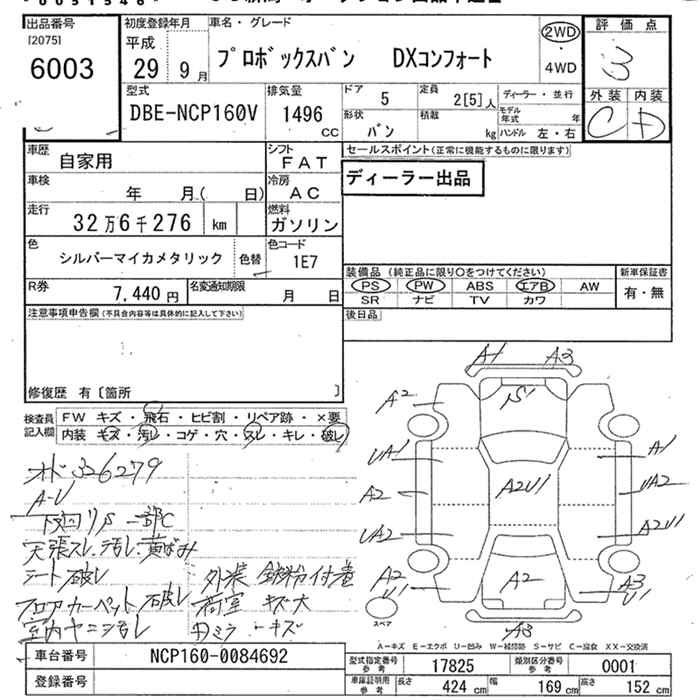 出品番号 初度登録年月 車名・グレード 評価点
[2075] 平成 2WD
6003 29年 9月 プロボックスバン DXコンフォート ・ 3
4WD
型式 排気量 ドア 定員 ディーラー・並行 外装 内装
DBE-NCP160V 1496 CC 5 2[5]人 モデル年式 年 C D
形状 積載
バン kg ハンドル 左・右
車歴 自家用 シフト FAT セールスポイント(正常に機能するものに限ります)
車検 年 月( 日) 冷房 AC ディーラー出品
走行 32万6千276 km 燃料 ガソリン
色 シルバーマイカメタリック 色替 色コード 1E7
装備品 (純正品に限り〇をつけてください) 新車保証書
R券 7,440円 名変通知期限 月 日 PS PW ABS エアB AW 有・無
SR ナビ TV カワ
注意事項申告欄(不具合内容等は具体的に記入して下さい) 後日品
修復歴 有〔箇所 〕
検査員記入欄 FW キズ・飛石・ヒビ割・リペア跡・×要
内装 キズ・汚レ・コゲ・穴・スレ・キレ・破レ
A1 A3
A2 S
UA1 A1
A2 A2U1 UA2
UA2 A2U1
A2 U1 A2 A3 U1
A3
スペア
326279
A-U
下回リS 一部C
天張スレ、汚レ、黄ばみ
シート破レ 外装 鉄粉付着
フロアカーペット破レ 荷室 キズ大
室内ヤニ汚レ ミラーキズ
A-キズ E-エクボ U-凹み W-補修跡 S-サビ C-腐食 XX-交換済
車台番号 NCP160-0084692 型式指定番号 参考 17825 類別区分番号 参考 0001
登録番号 車庫証明用 参考 長さ 424 cm 幅 169 cm 高さ 152 cm